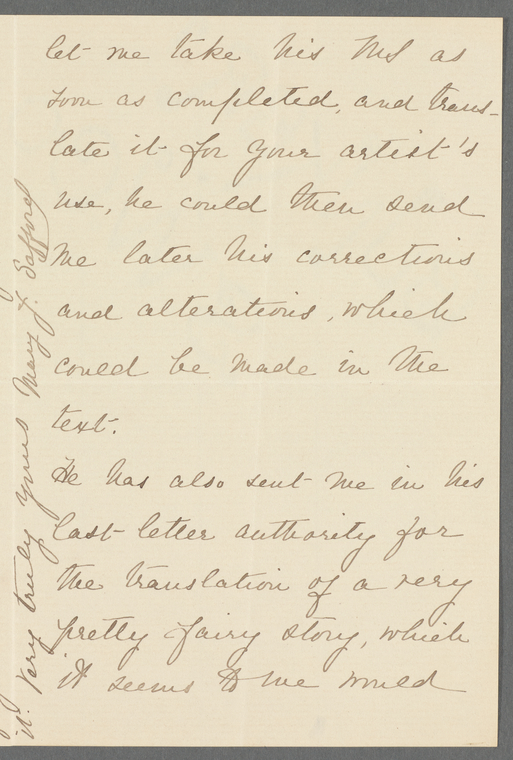 let me take his MS as
soon as completed, and trans-
late it for your artist's
use, he could then send
me later his corrections
and alterations, which
could be made in the
text.
He has also sent me in his
last letter authority for
the translation of a very
pretty fairy story, which
it seems to me would
it. Very truly yours Mary J. Safford